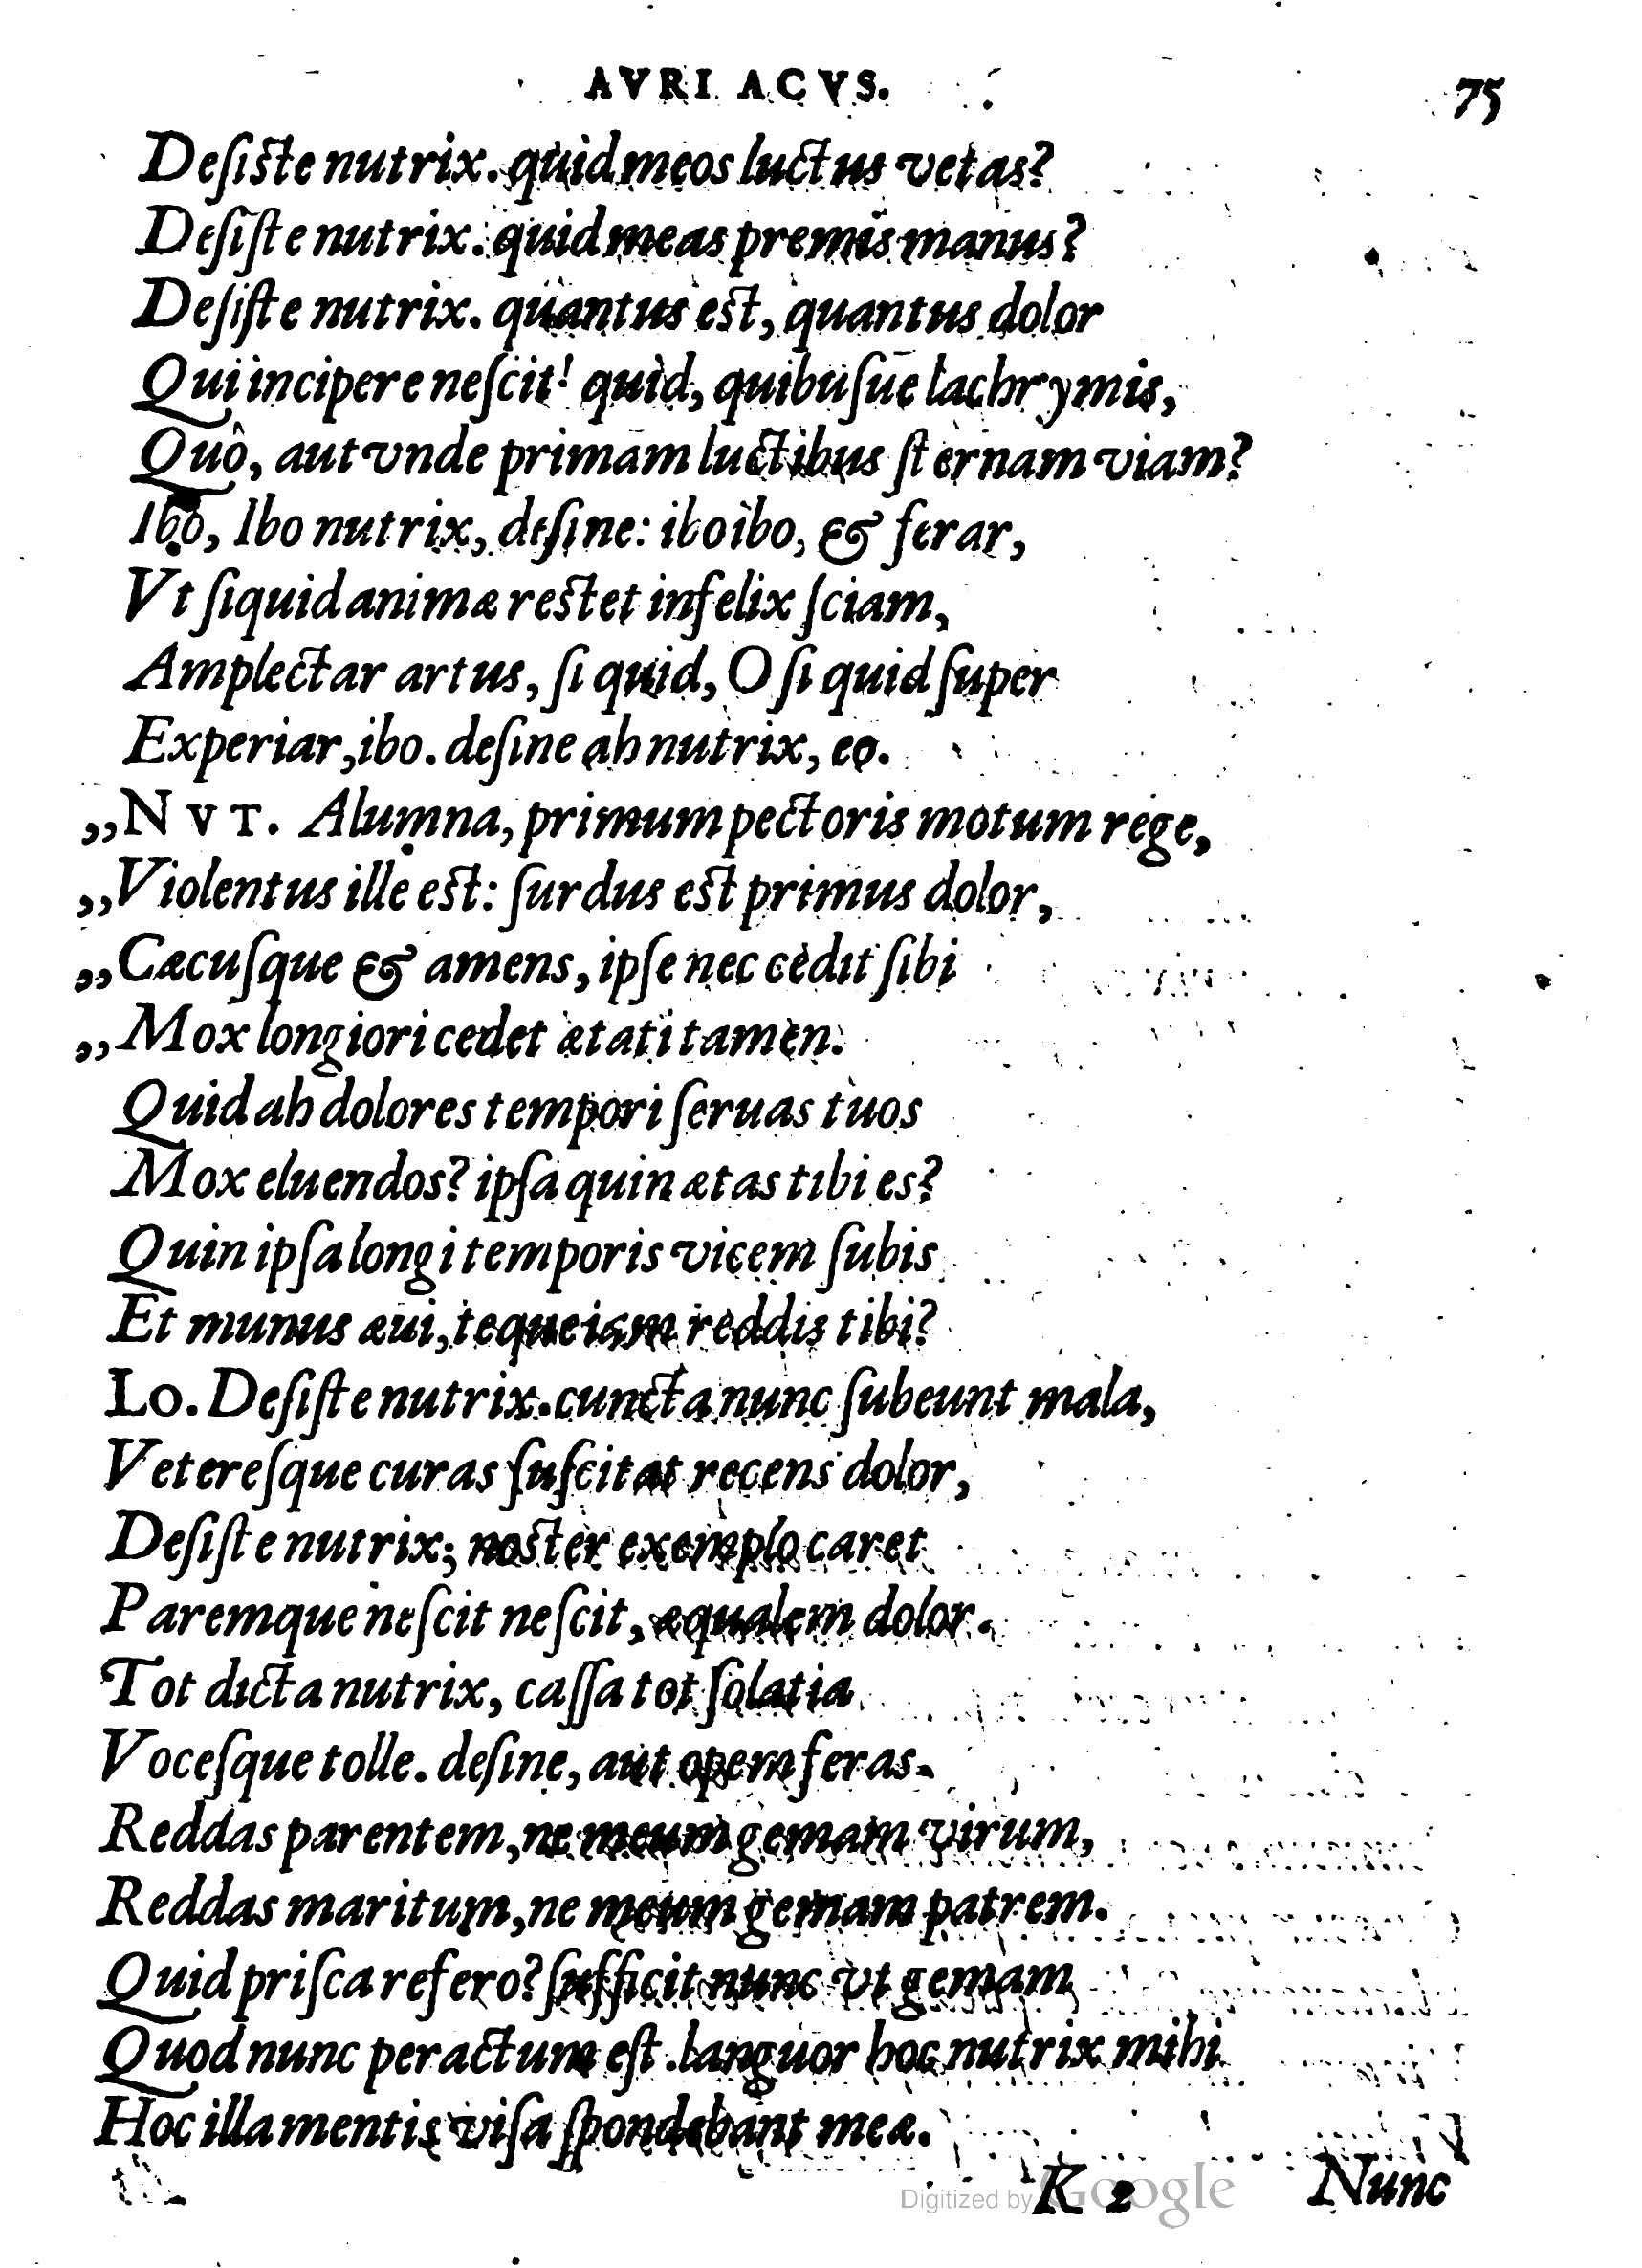 AVRI ACVS. 75
Deſiſte nutrix. quid meos luctus vetas?
Deſiſte nutrix. quid meas premis manus?
Deſiſte nutrix. quantus eſt, quantus dolor
Qui incipere neſcit! quid, quibuſue lachrymis,
Quô, aut vnde primam luctibus ſternam viam?
Ibo, Ibo nutrix, deſine: ibo ibo, & ferar,
Vt ſiquid animæ reſtet infelix ſciam,
Amplectar artus, ſi quid, O ſi quid ſuper
Experiar, ibo. deſine ah nutrix, eo.
„NVT. Alumna, primum pectoris motum rege,
„Violentus ille eſt: ſurdus eſt primus dolor,
„Cæcuſque & amens, ipſe nec cedit ſibi
„Mox longiori cedet ætati tamen.
Quid ah dolores tempori ſeruas tuos
Mox eluendos? ipſa quin ætas tibi es?
Quin ipſa longi temporis vicem ſubis
Et munus æui, teque iam reddis tibi?
LO. Deſiſte nutrix. cuncta nunc ſubeunt mala,
Vetereſque curas ſuſcitat recens dolor,
Deſiſte nutrix; noſter exemplo caret
Paremque neſcit neſcit, æqualem dolor.
Tot dicta nutrix, caſſa tot ſolatia
Voceſque tolle. deſine, aut opem feras.
Reddas parentem, ne meum gemam virum,
Reddas maritum, ne meum gemam patrem.
Quid priſca refero? ſufficit nunc vt gemam
Quod nunc peractum eſt. languor hoc nutrix mihi
Hoc illa mentis viſa ſpondebant meæ.
K 2 Nunc
Digitized by Google